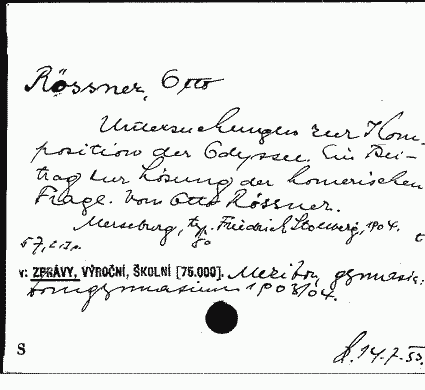 Rössner, Otto
Untersuchungen zur Kom-
position der Odyssee. Ein Bei-
trag zur Lösung der homerischen
Frage. Von Otto Rössner.
Merseburg, typ. Friedrich Stollberg, 1904.
57,
8°
v: ZPRÁVY, VÝROČNÍ, ŠKOLNÍ [75.000].
Domgymnasium 1903/04.
S
14.7.55.